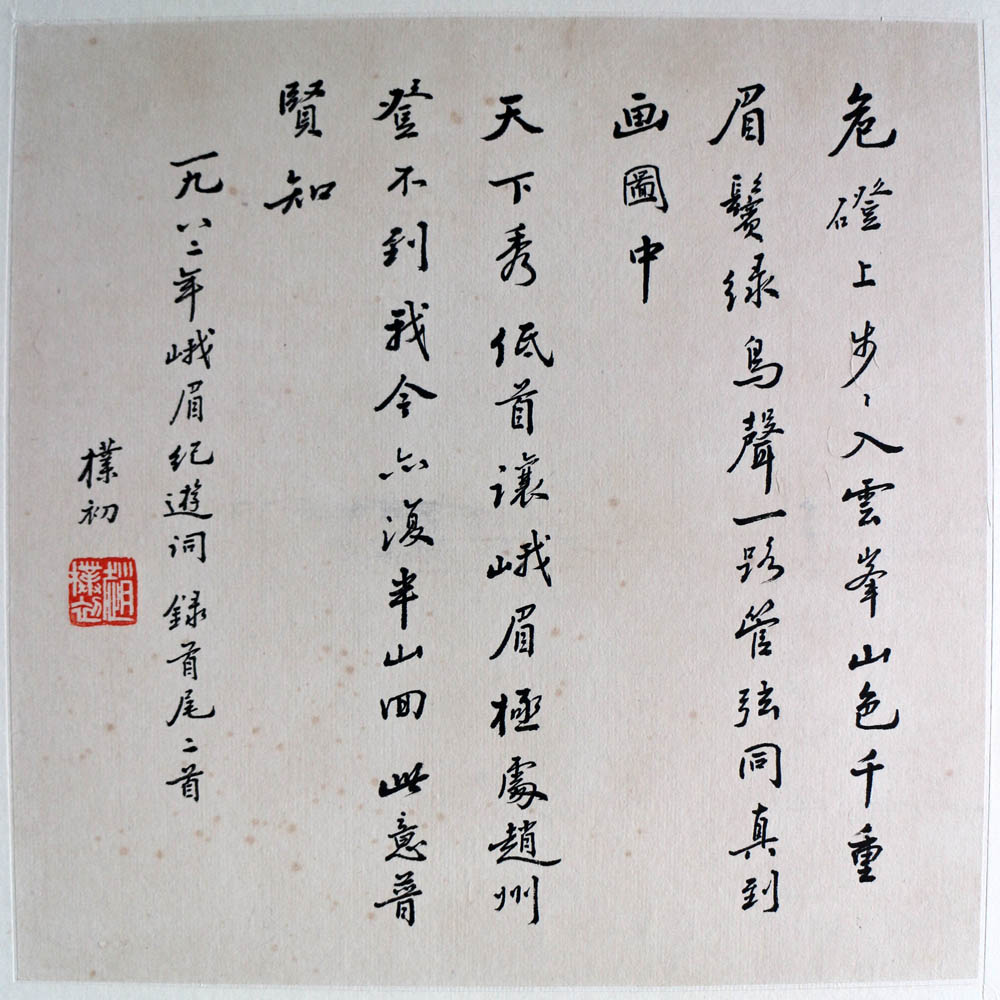 危磴上步〻入雲峯山色千重
眉鬢绿鳥聲一路管弦同真到
画圖中
天下秀低首讓峨眉極處趙州
登不到我今亦復半山回此意普
賢知
一九八二年峨眉纪遊词録首尾二首
樸初
趙樸初